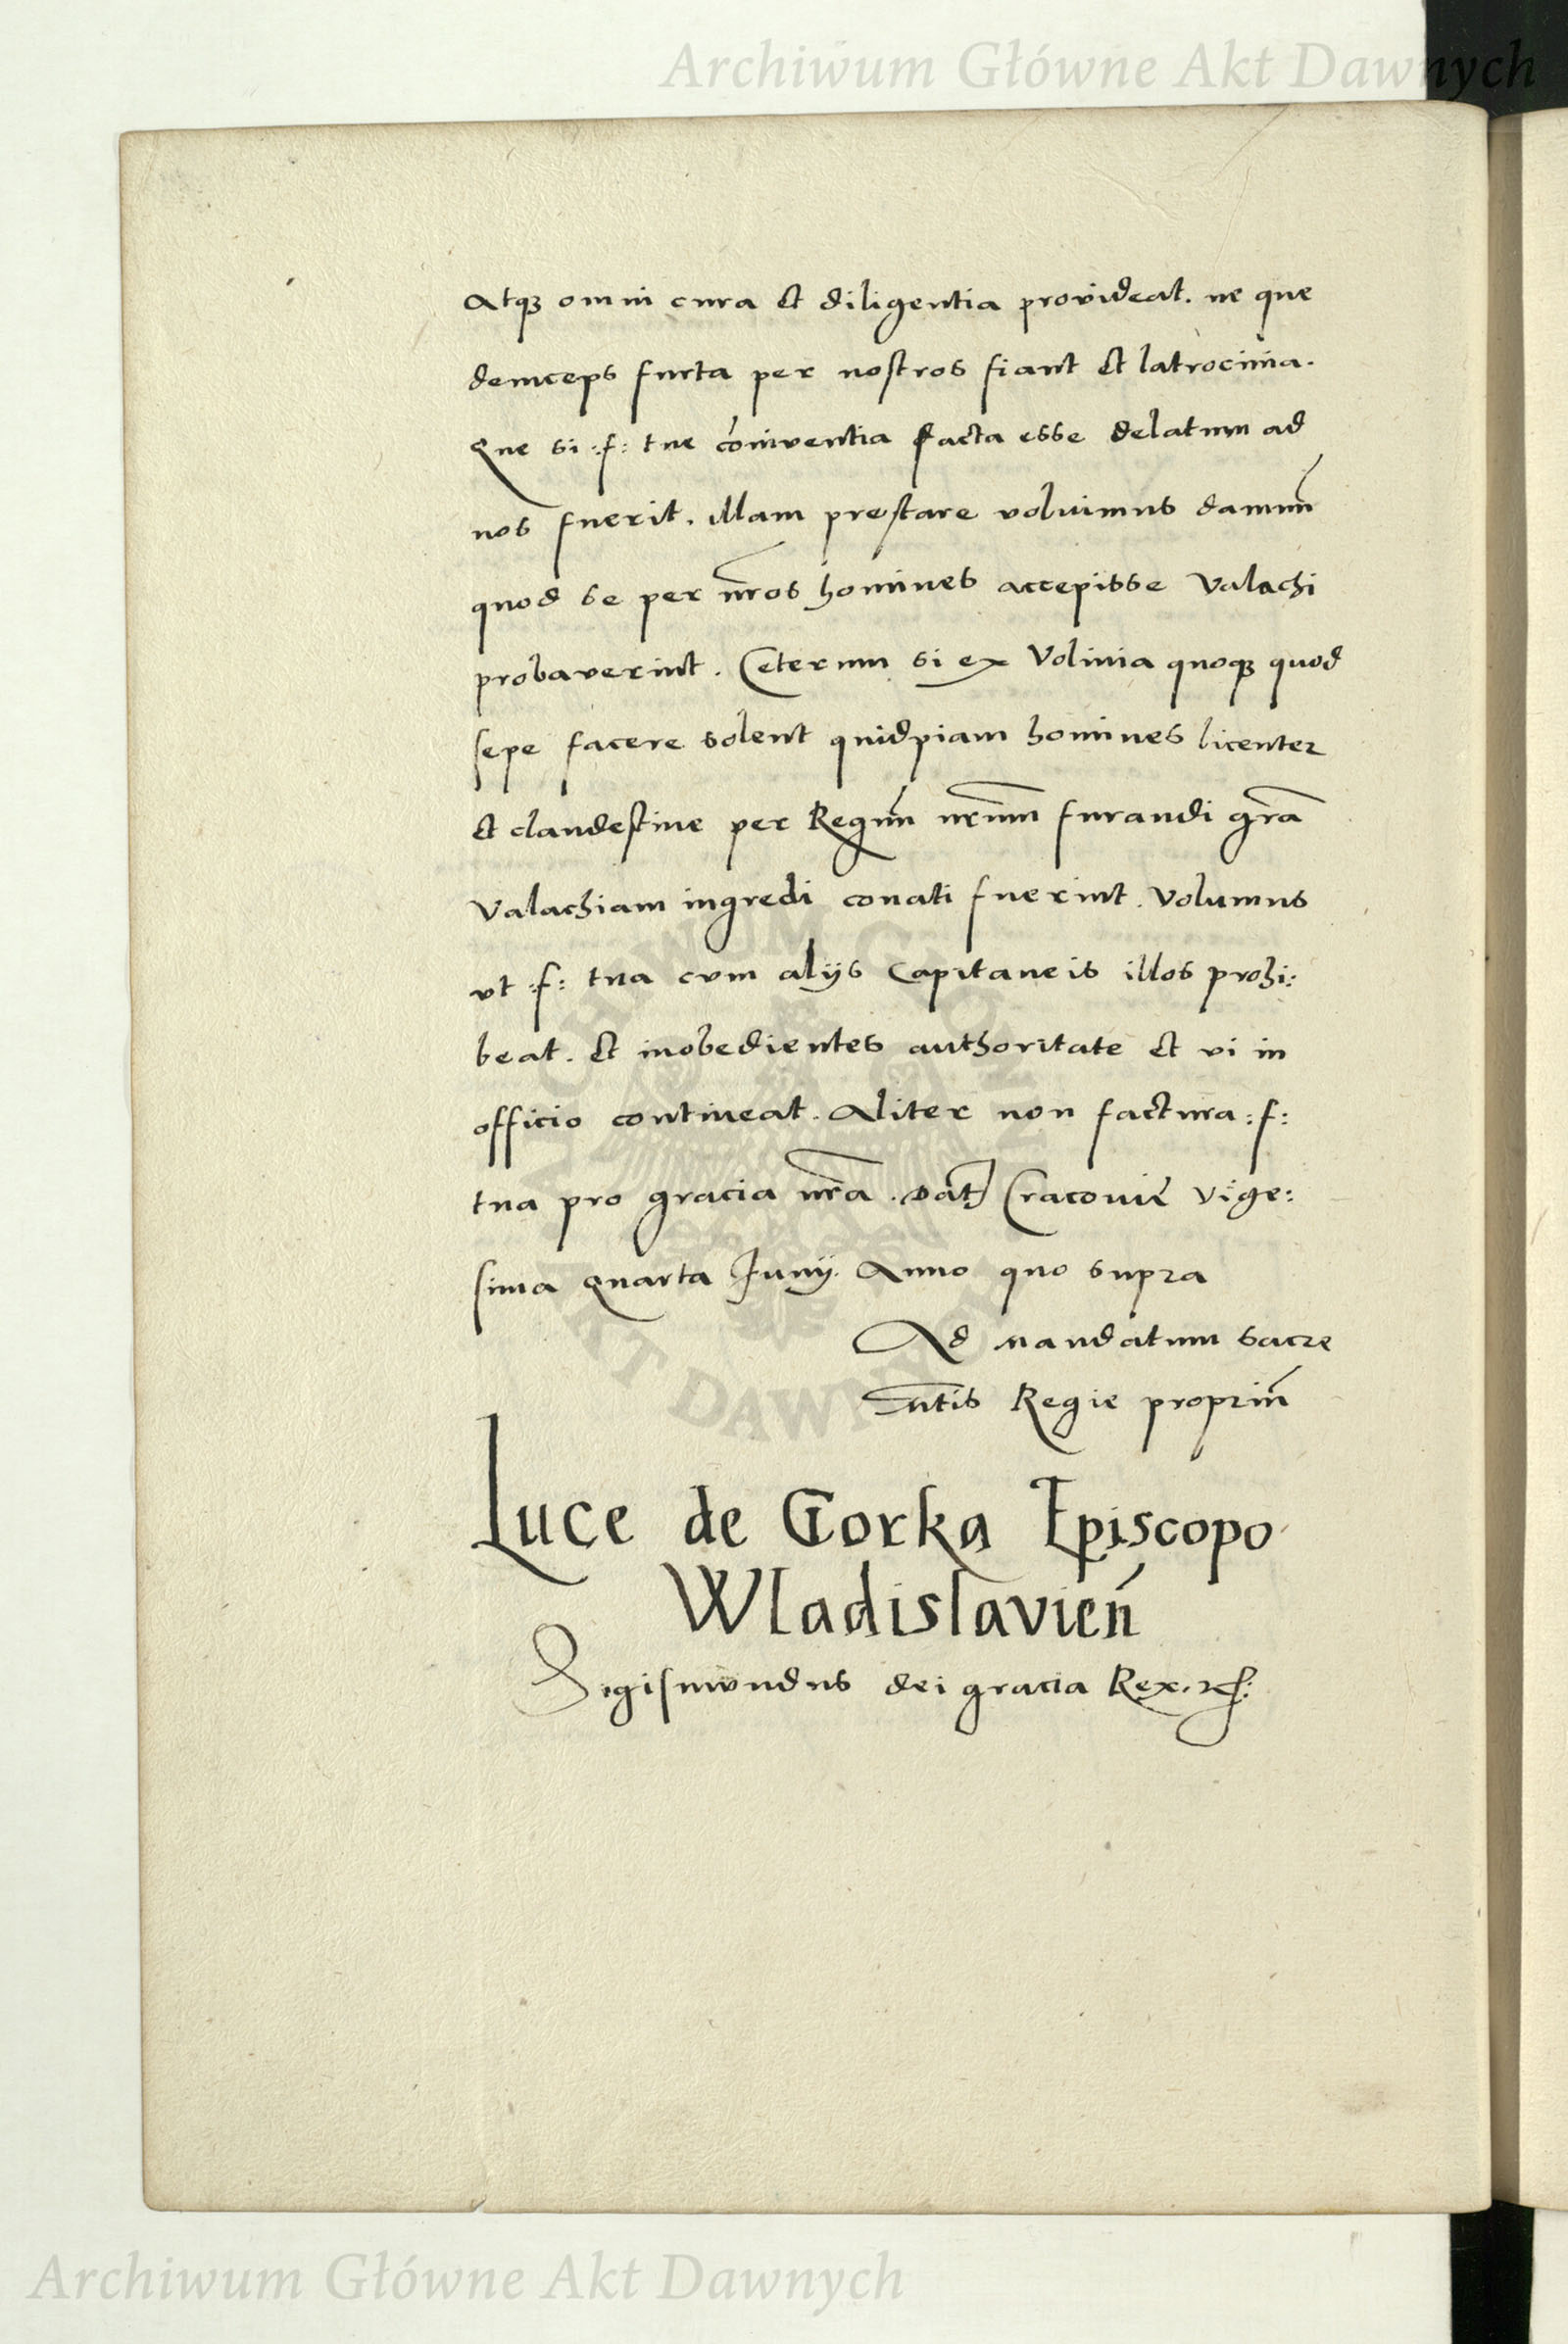 Archiwum Główne Akt Dawnych
Atqȝ omni cura et diligentia provideat. ne que
deinceps furta per nostros fiant et latrocinia.
Que si :f: tue coniventia facta esse delatum ad
nos fuerit. illam prestare volumus damnū
quod se per nr̄os homines accepisse Valachi
probaverint. Ceterum si ex Volinia quoqȝ quod
sepe facere solent quidpiam homines licenter
et clandestine per Regnū nr̄um furandi grā
Valachiam ingredi conati fuerint. Volumus
vt :f: tua cum alijs Capitaneis illos prohi:
beat. et inobedientes authoritate et vi in
officio contineat. Aliter non factura :f:
tua pro gracia nr̄a. Dat̄ Cracovie vige:
sima quarta Junij. Anno quo supra
Ad mandatum sacre
mt̄is Regie propriū
Luce de Gorka Episcopo
Wladislavień
Sigismundus dei gracia Rex. ⁊c:
ARCHIWUM GŁÓWNE AKT DAWNYCH
Archiwum Główne Akt Dawnych